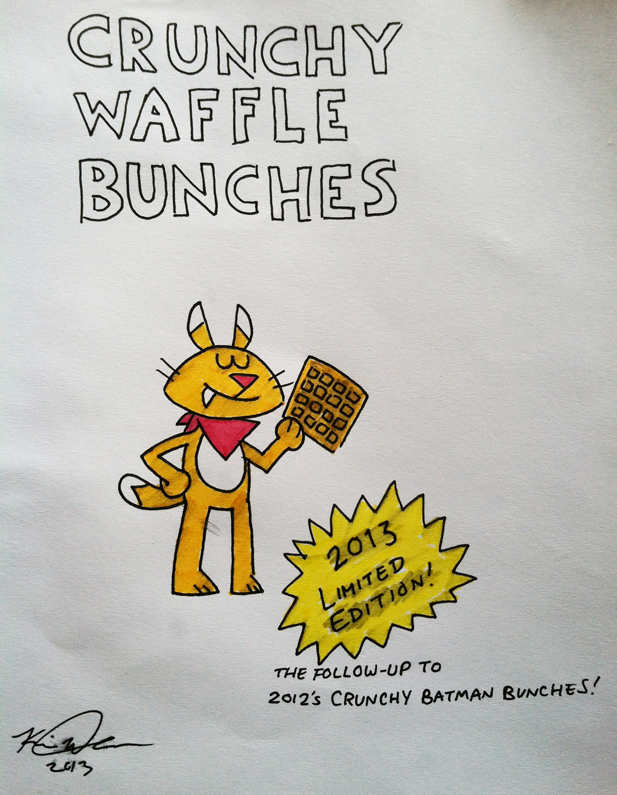 CRUNCHY
WAFFLE
BUNCHES
2013
LIMITED
EDITION!
THE FOLLOW-UP TO
2012's CRUNCHY BATMAN BUNCHES!
2013